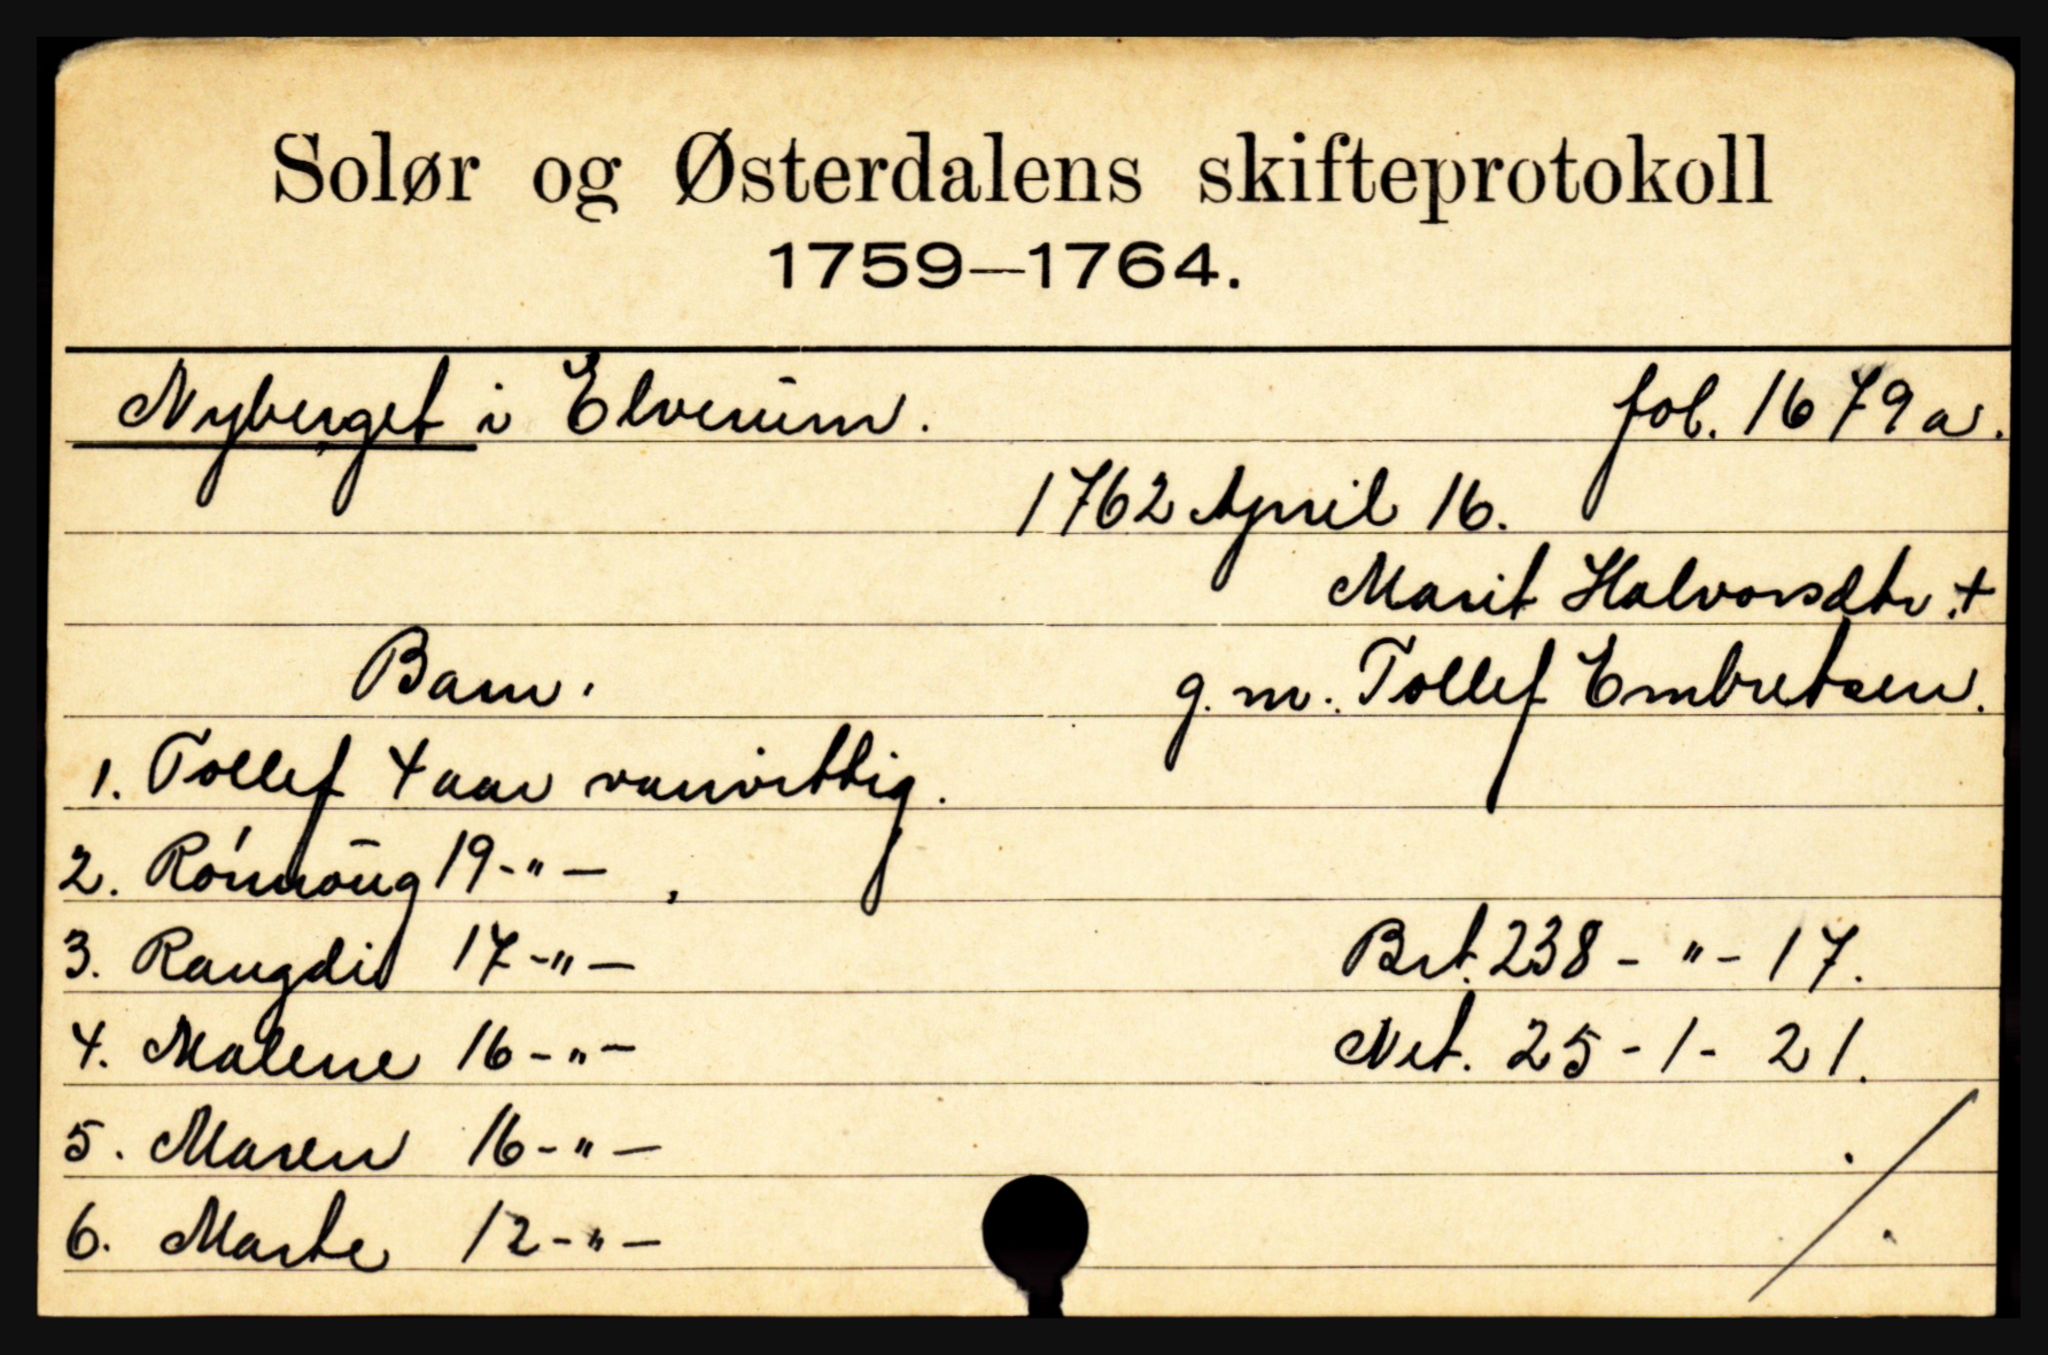 Solør og Østerdalens skifteprotokoll
1759—1764.
Nyberget i Elverum. fol. 1679a.
1762 April 16.
Marit Halvorsdtr. +
Barn. g. m. Tollef Embretsen.
1. Tollef 4 aar vanvittig.
2. Rønnoug 19 - " -
3. Rangdi 17 - " - Brt. 238 - " - 17.
4. Malene 16 - " - Net. 25 - 1 - 21.
5. Maren 16 - " -
6. Marte 12 - " - ./.